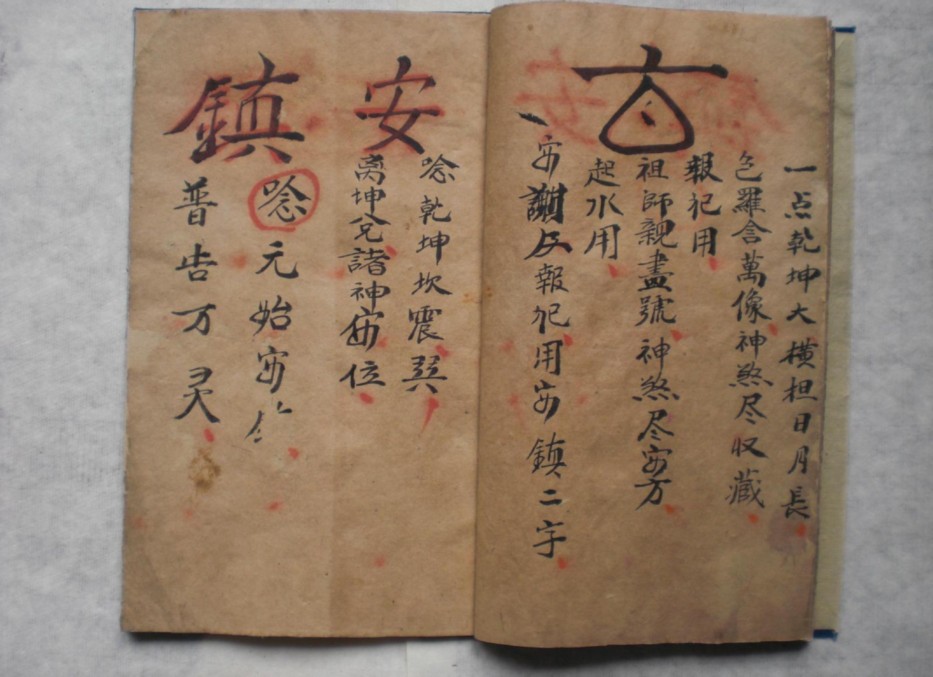 一点乾坤大横担日月長
包羅含萬像神煞尽收藏
報祀用
祖師親畫號神煞尽安方
起水用
安謝反報祀用安鎮二字
安
唸乾坤坎震巽
离坤兌諸神安位
鎮
唸元始安
普告万灵